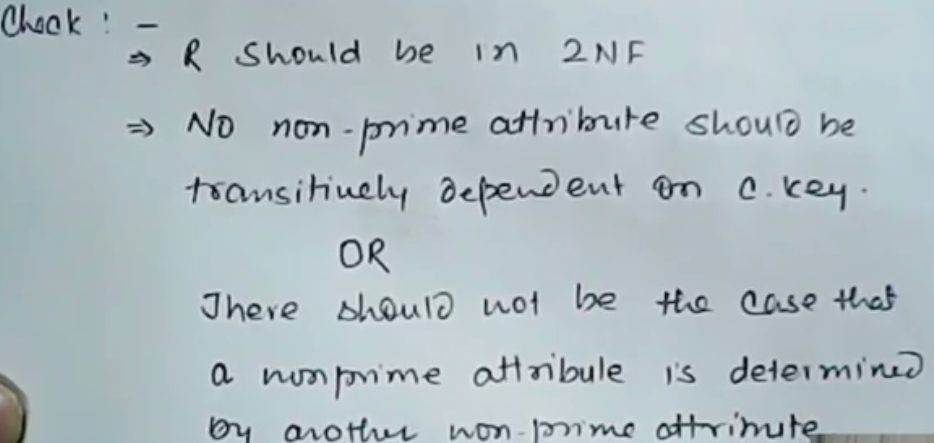 Check : -
⇒ R should be in 2NF
⇒ No non-prime attribute should be
transitively dependent on c.key.
OR
There should not be the case that
a nonprime attribule is determined
by another non-prime attribute